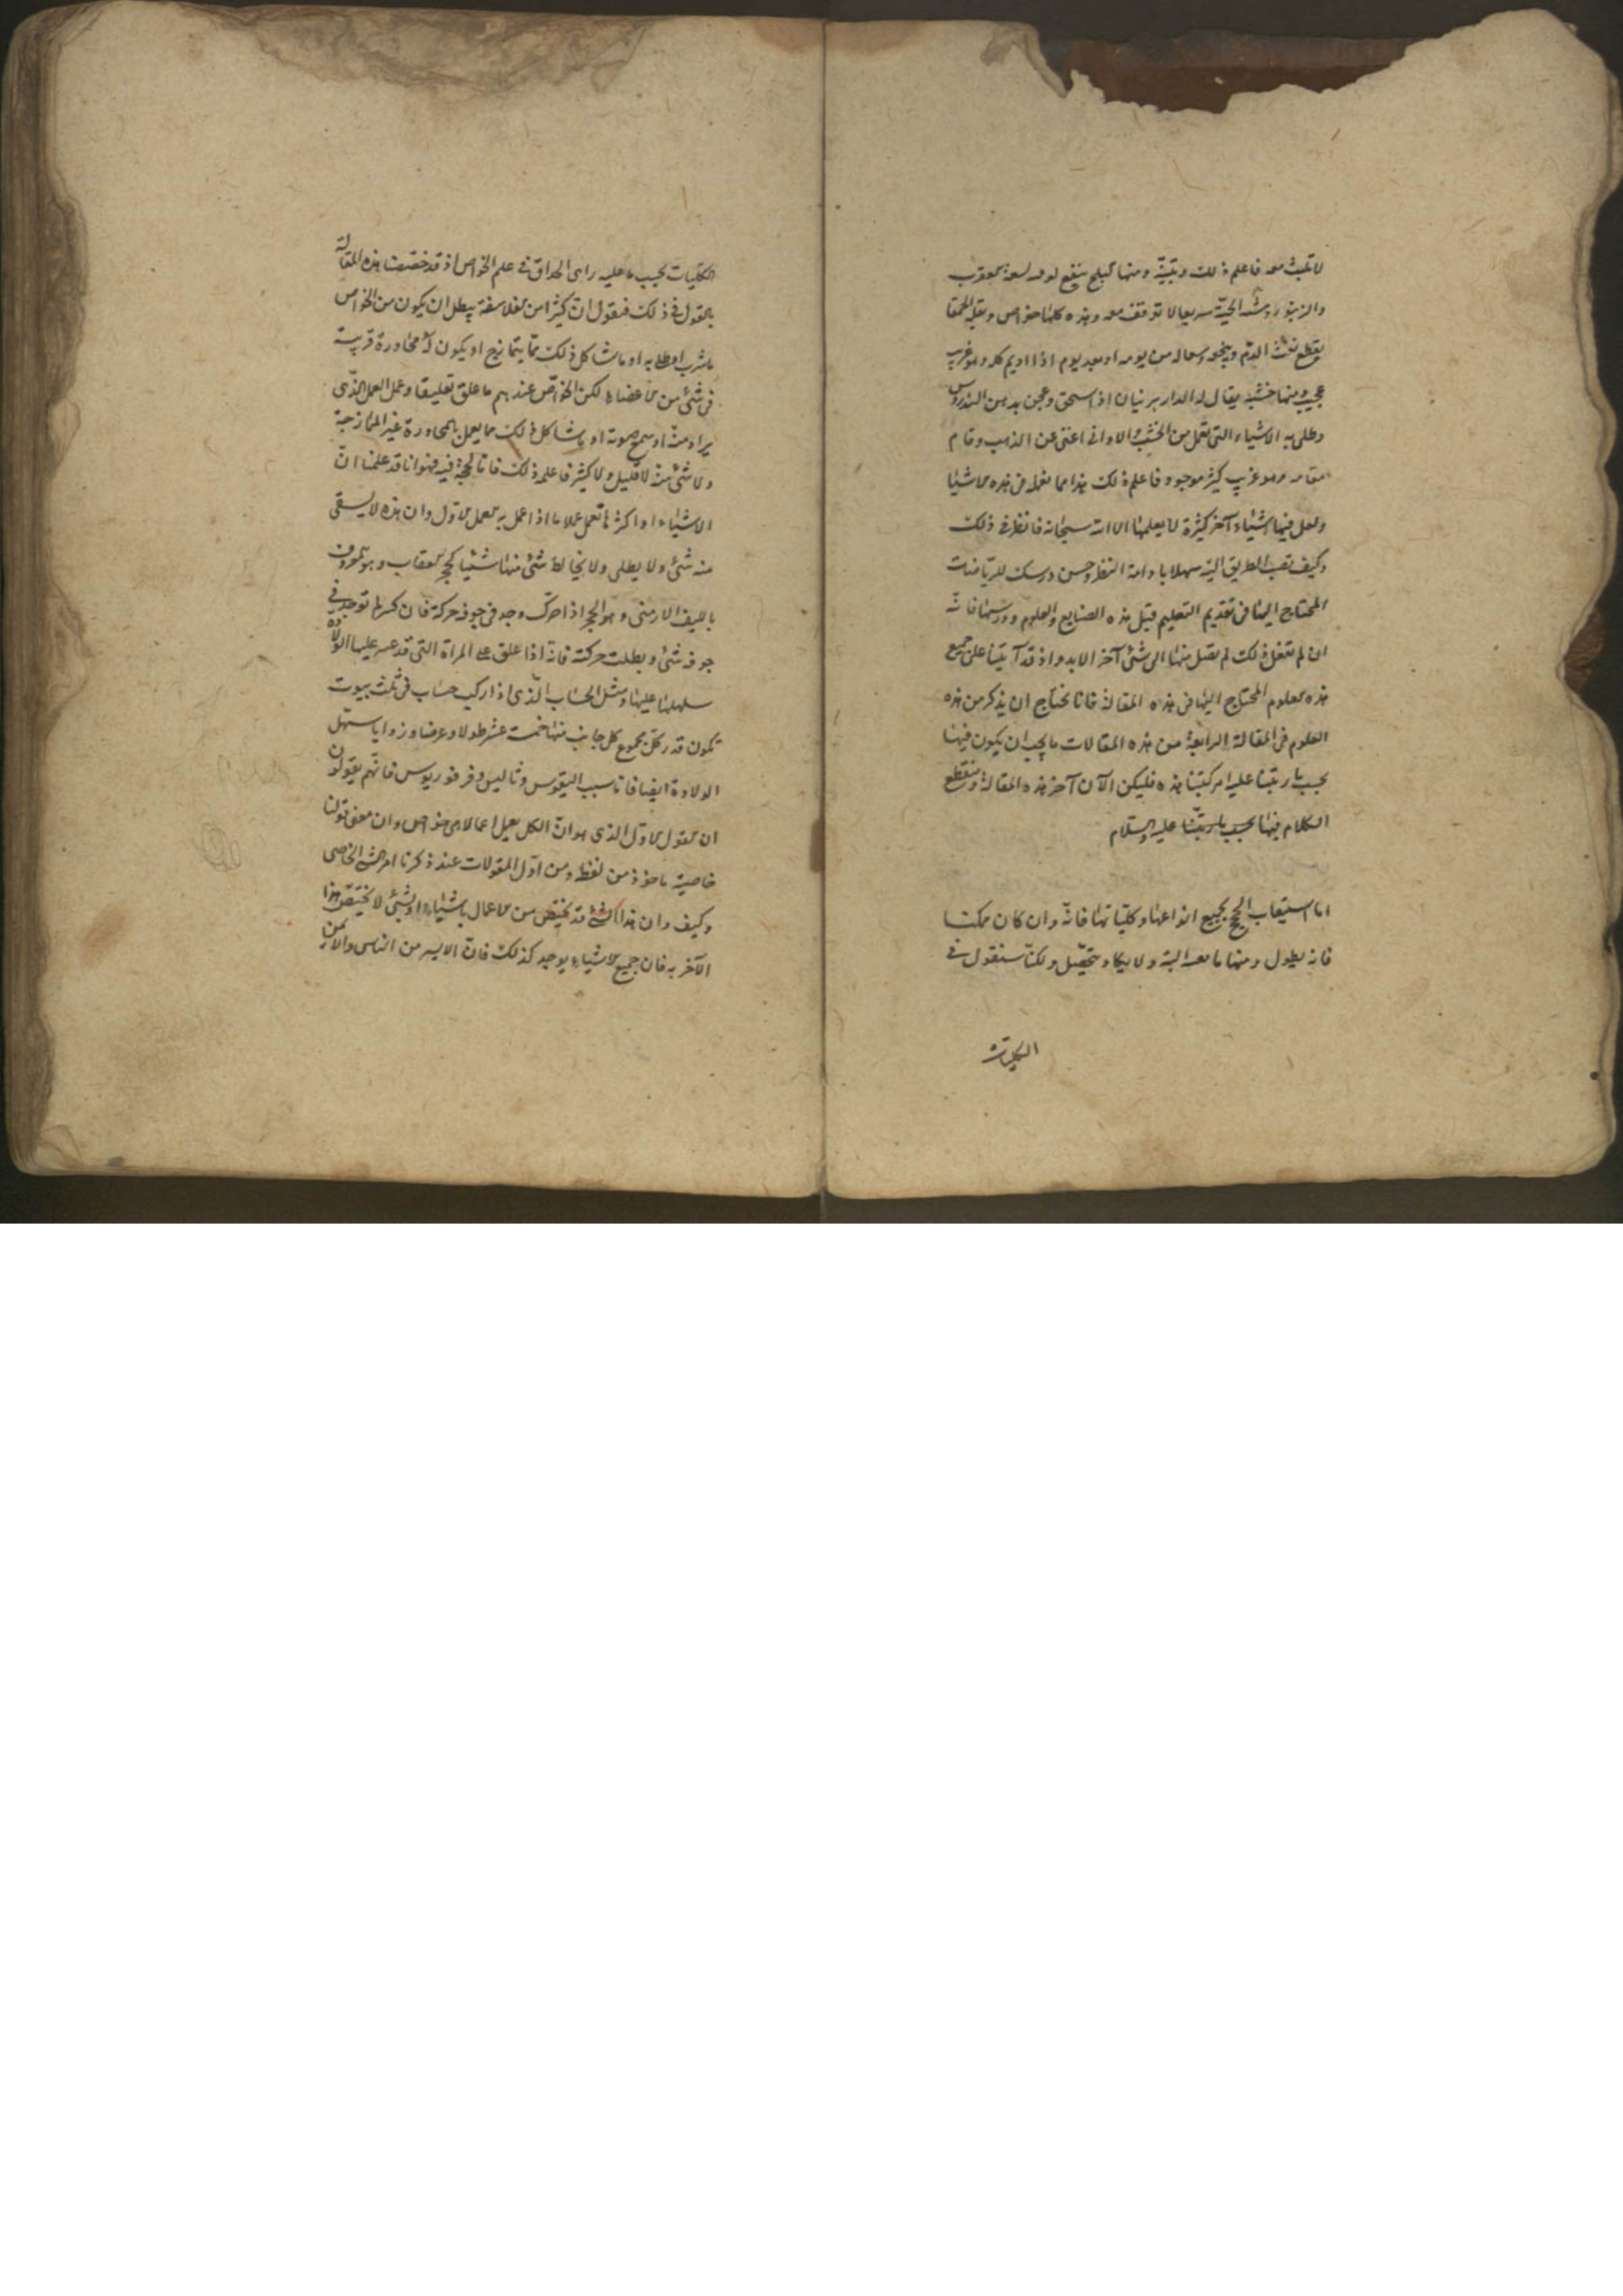 لا تلبث معه فاعلم ذلك وتبيّنه ومنها ينفع لوعه لسعة العقرب
والزنبور الحيّة سريعا لا توقف معه وهذه كلها خواص وبقلة الحمقا
يقطع نفث الدم من يومه او بعد يوم اذا اديم كله وهو غريب
عجيب ومنها خشبة يقال له الداربرنيان اذا سحق وعجن بدهن السندروس
وطلى به الاشياء التى تعمل من الخشب والاوانى اغنى عن الذهب وقام
مقامه وهو غريب كثير موجود فاعلم ذلك هذا مما نعمله من هذه الاشيا
ولعل فيها اشياء آخر كثيرة لا يعلمها الا الله سبحانه فانظر فى ذلك
وكيف تصب الطريق اليه سهلا بادامة النظر وحسن درسك للرياضات
المحتاج اليها فى تقديم التعليم قبل هذه الصنايع والعلوم ودرسها فانّه
ان لم تفعل ذلك لم تصل منها الى شئ آخر الابد واذ قد آتينا على جميع
هذه العلوم المحتاج اليها فى هذه المقالة فانا نحتاج ان يذكر من هذه
العلوم فى المقالة الرابعة من هذه المقالات ما يجب ان يكون فيها
بحسب ما ربتنا عليه امر كتبنا هذه فليكن الآن آخر هذه المقالة ونقطع
الكلام فيها بحسب ما ربّتنا عليه والسلام
اما استيعاب الحج بجميع انواعها وكليّاتها فانّه وان كان ممكنا
فانه يطول ومنها ما البتة ولا يكاد يتحصّل ولكنّا سنقول فى
الكليات
الكلّيات بحسب ما عليه راى الحذاق فى علم الخواص اذ قد خصّصت هذه المقالة
بالقول فى ذلك فنقول انّ كثيرا من الفلاسفة يبطل ان يكون من الخواص
ما شرب او طلى به او ما شاكل ذلك ممّا يتمازج او يكون له مجاورة قريبة
فى شئ من الاعضاء لكن الخواصّ عندهم ما علق تعليقا وعمل العمل الذّى
يراد منه او سمع صوته او ما شاكل ذلك مما يعمل بالمجاورة غير الممازجة
ولا شئ منه لا قليل ولا كثير فاعلم ذلك فاما الحجة فيه فهو انا قد علمنا انّ
الاشياء او اكثرها تعمل عملا ما اذا عمل به العمل الاول وان هذه لا يسقى
منه شئ ولا يطلى ولا يخالط شئ منها شئيا كحجر العقاب وهو المعروف
بالليف الارمنى وهو الحجر اذا حرّك وجد فى جوفه حركة فان كسر لم توجد فى
جوفه شئ وبطلت حركته فانه اذا علق على المراة التى قد عسر عليها الولادة
سهلها عليها ومثل الحساب الّذى اذا ركب حساب فى ثلث بيوت
تكون قدر كلّ مجموع كل جانب منها خمسة عشر طولا وعرضا وزوايا سهّل
الولادة ايضا فاما سبب اليقوس وثاليس وفرفوريوس فانّهم يقولون
ان القول الاول الذى هو انّ الكل يعمل اعمالا هى خواص وان معنى قولنا
خاصية ماخوذ من لفظه ومن اوّل المقولات عند ذكرنا امر الشئ الخاصى
وكيف وان هذا الشئ قد يختصّ من الاعمال باشياء او بشئ لا يختصّ هذا
الآخر به فان جميع الاشياء يوجد كذلك فانّ الايسر من الناس والايمن